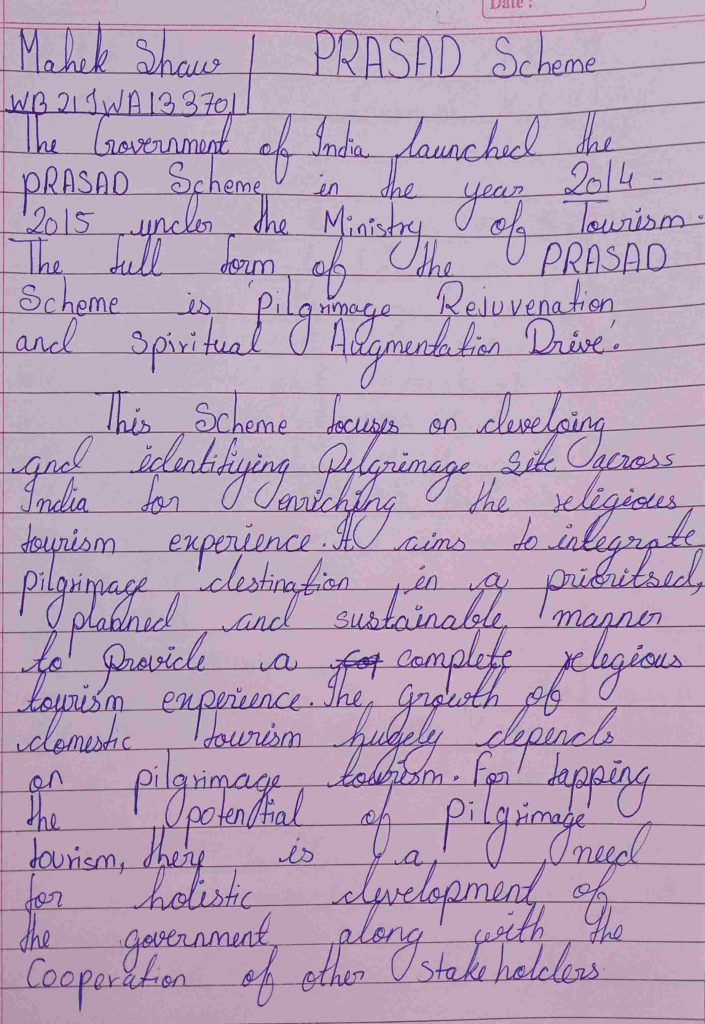 Date :
Mahek Shaw | PRASAD Scheme
WB21SWA133701
The Government of India launched the
PRASAD Scheme in the year 2014 -
2015 under the Ministry of Tourism.
The full form of the PRASAD
Scheme is 'Pilgrimage Rejuvenation
and Spiritual Augmentation Drive'.
This Scheme focuses on develping
and identifying Pilgrimage site across
India for enriching the religious
tourism experience. It aims to integrate
pilgrimage destination in a prioritsed,
planned and sustainable manner
to provide a complete religious
tourism experience. The growth of
domestic tourism hugely depends
on pilgrimage tourism. For tapping
the potential of Pilgrimage
tourism, there is a need
for holistic development of
the government along with the
Cooperation of other stakeholders